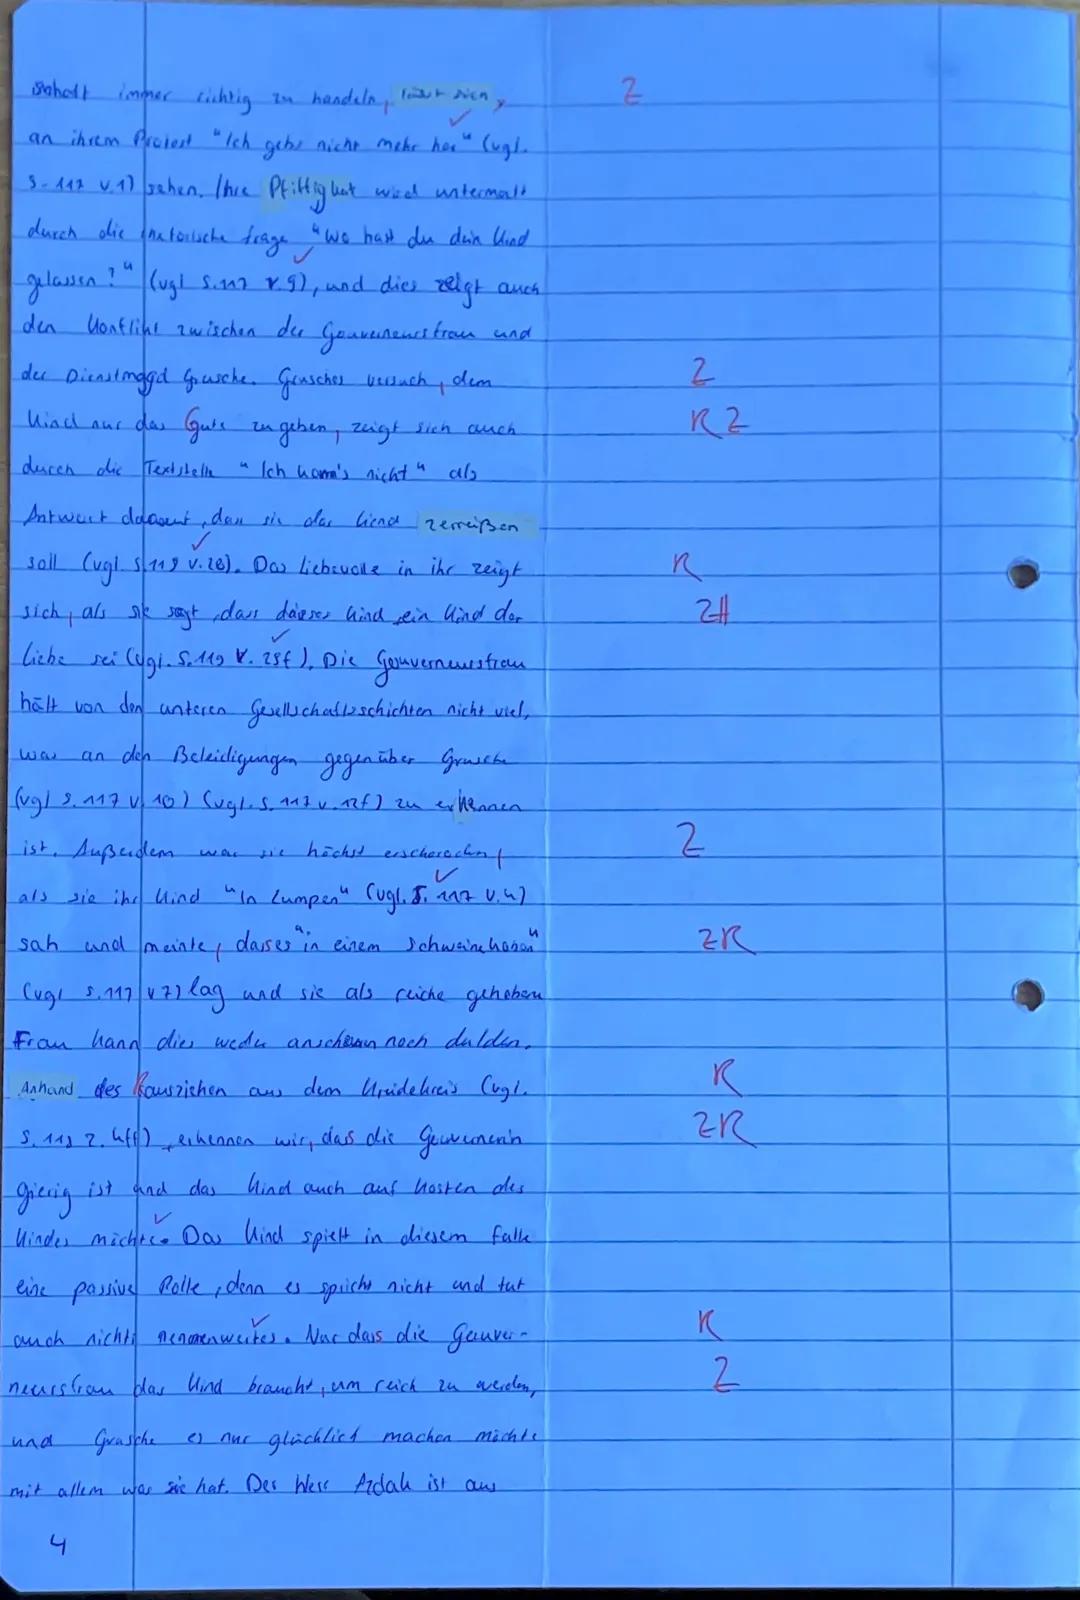 immer richtig zu handeln, lässt sich, Z
an ihrem Protest "Ich gebs nicht mehr her" (vgl.
S. 117 V.1) sehen. Ihre Pfiffigkeit wird untermalt
durch die rhetorische frage "Wo hast du dein Kind
gelassen?" (vgl S.117 V.9), und dies zeigt auch
den Konflikt zwischen der Gouverneursfrau und
der Dienstmagd Grusche. Grusches versuch, dem Z
Kind nur das Gute zu geben, zeigt sich auch R Z
durch die Textstelle "Ich kann's nicht" als
Antwort darauf, dass sie das Kind zerreißen
soll (vgl. S.119 V.28). Das Liebevolle in ihr zeigt R
sich, als sie sagt, dass dieses Kind ein Kind der ZH
Liebe sei (vgl. S.119 V. 25f). Die Gouverneursfrau
hält von den unteren Gesellschaftsschichten nicht viel,
was an den Beleidigungen gegenüber Grusche
(vgl S. 117 V. 10) (vgl. S. 117 V. 12f) zu erkennen
ist. Außerdem war sie höchst, Z
als sie ihr Kind "In Lumpen" (vgl. S. 117 V.4)
sah und meinte, dass es "in einem Schweinekoben" ZR
(vgl S.117 V7) lag und sie als reiche gehobene
Frau kann dies weder anschauen noch dulden.
Anhand des Rausziehen aus dem Kreidekreis (vgl. R
S. 119 Z. 4ff), erkennen wir, dass die ZR
gierig ist und das Kind auch auf kosten des
Kindes möchte. Das Kind spielt in diesem falle
eine passive Rolle, denn es spricht nicht und tut
auch nichts nennenwertes. Nur dass die Gouver- R
neursfrau das Kind braucht, um reich zu werden, Z
und Grusche es nur glücklich machen möchte
mit allem was sie hat. Der Azdak ist aus
4